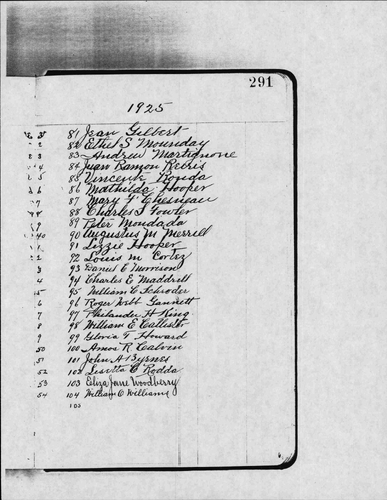 291
1925
81 Jean Gilbert
82 Ethel S Mounday
2 83 Andrew Martignone
4 84 Juan Ramon Rebris
5 85 Vincent Ronda
6 86 Mathilda Hooper
7 87 Mary F Chesneau
8 88 Charles F Fowler
9 89 Peter Mondada
40 90 Augustus M Merrell
1 91 Lizzie Hooper
2 92 Louis M Cortez
3 93 Daniel C Morrison
4 94 Charles E Maddrell
5 95 William C Schroder
6 96 Roger Webb Gannett
7 97 Philander H King
8 98 William E Callister
9 99 Gloria T Howard
50 100 Amos R Calvin
51 101 John A Byrnes
52 102 Lisetta C Rodda
53 103 Eliza Jane Woodberry
54 104 William C Williams
105